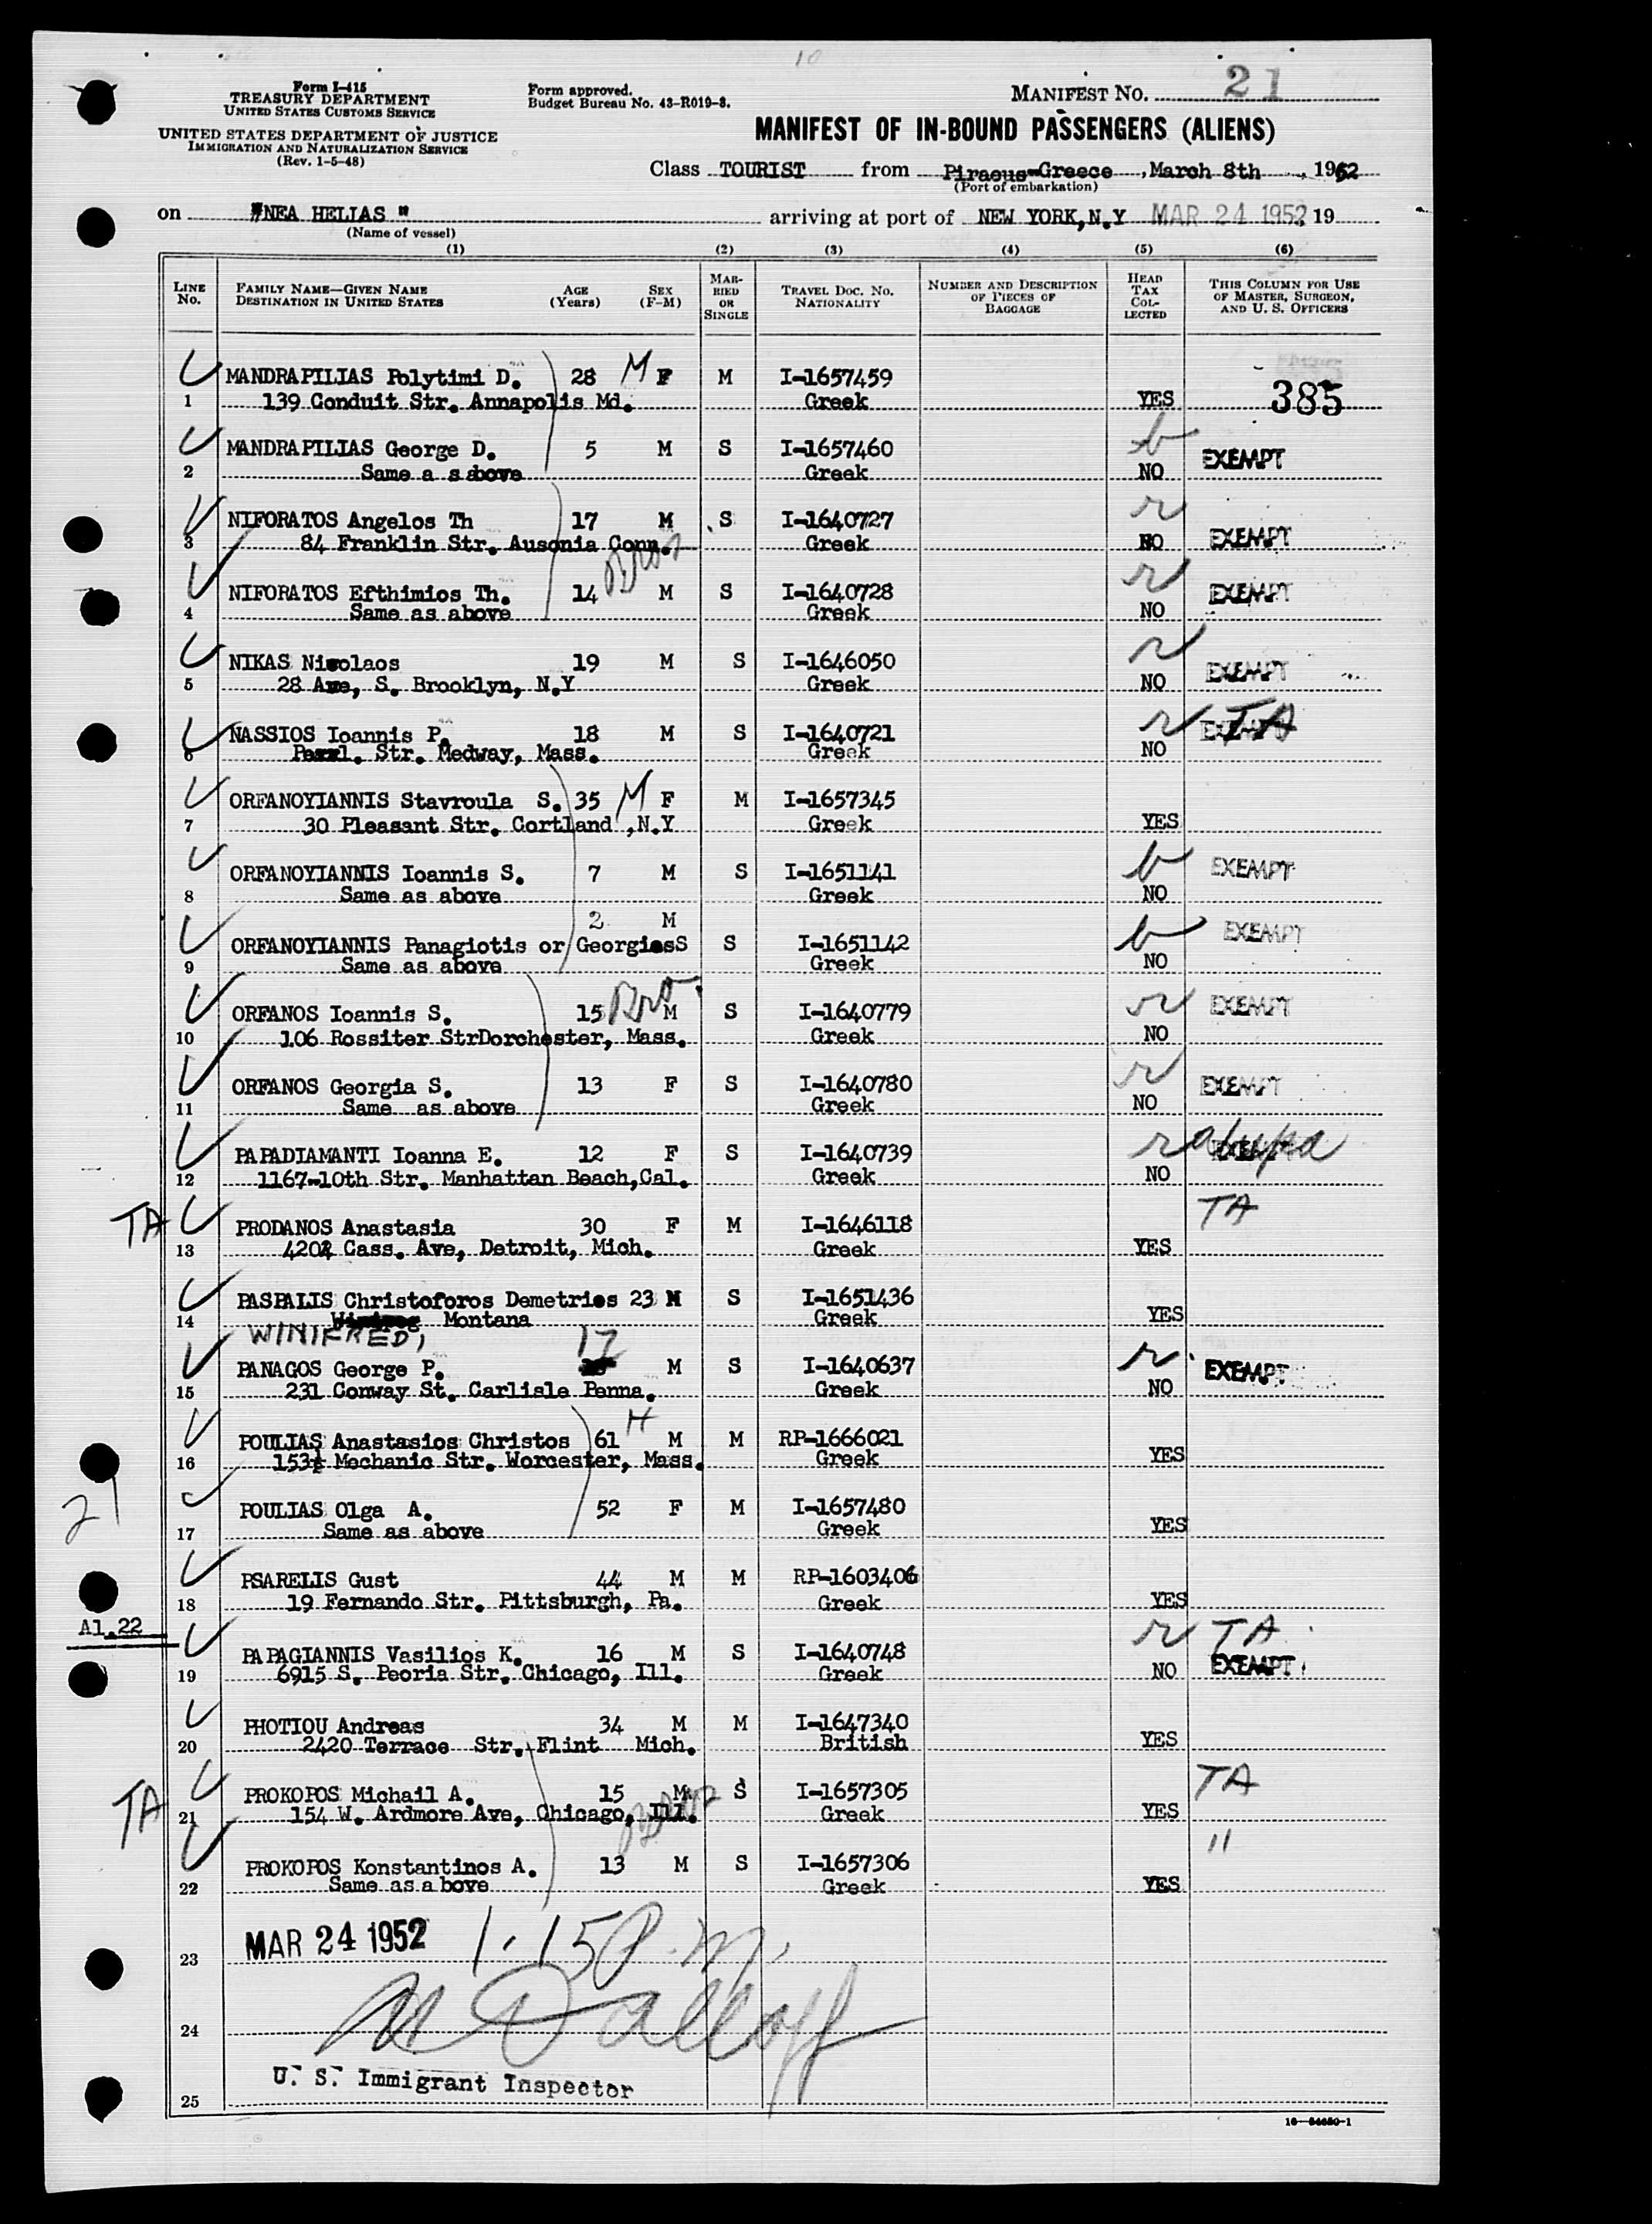 10
Form I-415
TREASURY DEPARTMENT
UNITED STATES CUSTOMS SERVICE
UNITED STATES DEPARTMENT OF JUSTICE
IMMIGRATION AND NATURALIZATION SERVICE
(Rev. 1-5-48)
Form approved.
Budget Bureau No. 43-R019-3.
MANIFEST NO. 21
MANIFEST OF IN-BOUND PASSENGERS (ALIENS)
Class TOURIST from Piraeus-Greece, March 8th, 1952
(Port of embarkation)
on "NEA HELIAS" arriving at port of NEW YORK, N.Y MAR 24 1952, 19
(Name of vessel)
(1) (2) (3) (4) (5) (6)
LINE NO.
FAMILY NAME—GIVEN NAME
DESTINATION IN UNITED STATES
AGE (Years)
SEX (F-M)
MARRIED OR SINGLE
TRAVEL DOC. NO. NATIONALITY
NUMBER AND DESCRIPTION OF PIECES OF BAGGAGE
HEAD TAX COLLECTED
THIS COLUMN FOR USE OF MASTER, SURGEON, AND U. S. OFFICERS
MANDRAPILIAS Polytimi D. 28 M F M I-1657459
1 139 Conduit Str. Annapolis Md. Greek YES 385
MANDRAPILIAS George D. 5 M S I-1657460 EXEMPT
2 Same a s above Greek NO
NIFORATOS Angelos Th 17 M S I-1640727 EXEMPT
3 84 Franklin Str. Ausonia Conn. Greek NO
NIFORATOS Efthimios Th. 14 M S I-1640728 EXEMPT
4 Same as above Greek NO
NIKAS Nicolaos 19 M S I-1646050 EXEMPT
5 28 Ave, S. Brooklyn, N.Y Greek NO
NASSIOS Ioannis P. 18 M S I-1640721 EXEMPT TA
6 Str. Medway, Mass. Greek NO
ORFANOYIANNIS Stavroula S. 35 M F M I-1657345
7 30 Pleasant Str. Cortland ,N.Y Greek YES
ORFANOYIANNIS Ioannis S. 7 M S I-1651141 EXEMPT
8 Same as above Greek NO
2 M
ORFANOYIANNIS Panagiotis or Georgios S S I-1651142 EXEMPT
9 Same as above Greek NO
ORFANOS Ioannis S. 15 Bro. M S I-1640779 EXEMPT
10 106 Rossiter StrDorchester, Mass. Greek NO
ORFANOS Georgia S. 13 F S I-1640780 EXEMPT
11 Same as above Greek NO
PAPADIAMANTI Ioanna E. 12 F S I-1640739 EXEMPT
12 1167-10th Str. Manhattan Beach,Cal. Greek NO
TA PRODANOS Anastasia 30 F M I-1646118 TA
13 4202 Cass. Ave, Detroit, Mich. Greek YES
PASPALIS Christoforos Demetrios 23 M S I-1651436
14 Montana Greek YES
WINIFRED,
PANAGOS George P. 17 M S I-1640637 EXEMPT
15 231 Conway St. Carlisle Penna. Greek NO
POULIAS Anastasios Christos 61 H M M RP-1666021
16 153½ Mechanic Str. Worcester, Mass. Greek YES
21
POULIAS Olga A. 52 F M I-1657480
17 Same as above Greek YES
PSARELIS Gust 44 M M RP-1603406
18 19 Fernando Str. Pittsburgh, Pa. Greek YES
Al.22
PAPAGIANNIS Vasilios K. 16 M S I-1640748 TA
19 6915 S. Peoria Str. Chicago, Ill. Greek NO EXEMPT
PHOTIOU Andreas 34 M M I-1647340
20 2420 Terrace Str. Flint Mich. British YES
TA PROKOPOS Michail A. 15 M S I-1657305 TA
21 154 W. Ardmore Ave, Chicago, Ill. Greek YES
PROKOPOS Konstantinos A. 13 M S I-1657306 "
22 Same as a bove Greek YES
MAR 24 1952 1.15 P.m.
23
24
U. S. Immigrant Inspector
25